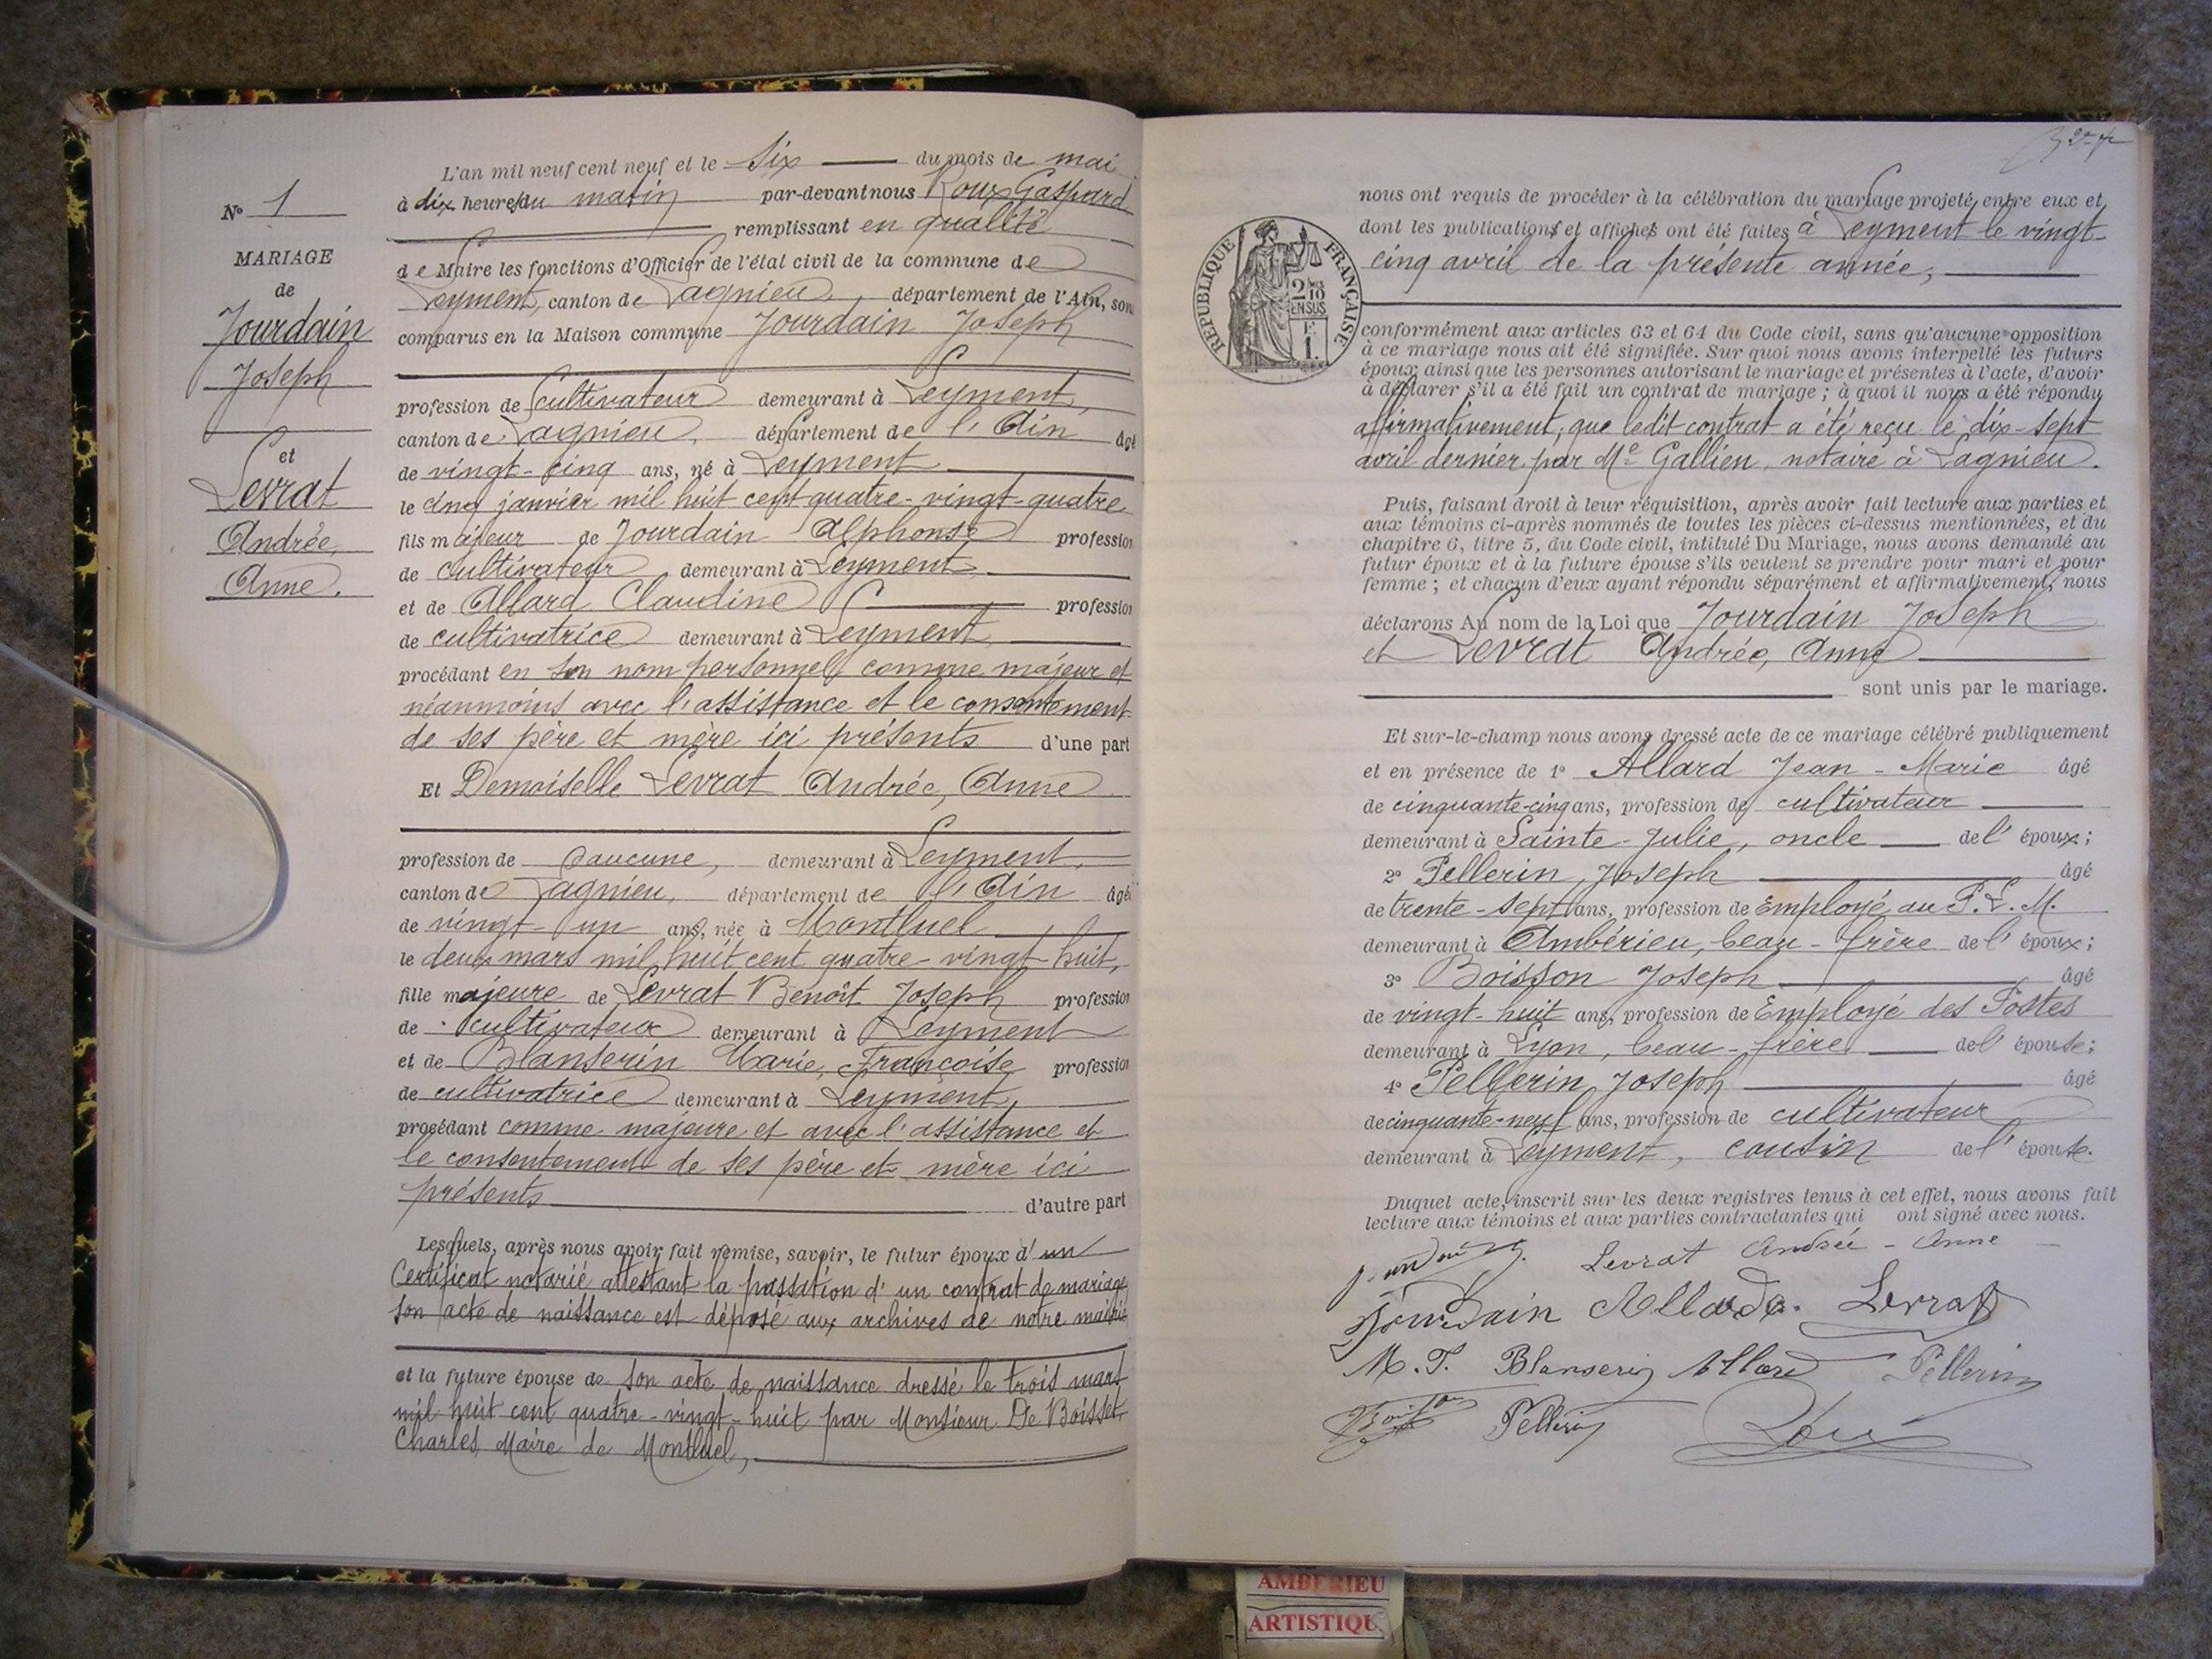 L'an mil neuf cent neuf et le six du mois de mai
à dix heures du matin par-devant nous Roux Gaspard
remplissant en qualité
de Maire les fonctions d'Officier de l'état civil de la commune de
Leyment, canton de Lagnieu, département de l'Ain, son
comparus en la Maison commune Jourdain Joseph
profession de cultivateur demeurant à Leyment,
canton de Lagnieu, département de l'Ain âgé
de vingt-cinq ans, né à Leyment
le cinq janvier mil huit cent quatre-vingt-quatre
fils majeur de Jourdain Alphonse profession
de cultivateur demeurant à Leyment,
et de Allard Claudine profession
de cultivatrice demeurant à Leyment,
procédant en son nom personnel comme majeur et
néanmoins avec l'assistance et le consentement
de ses père et mère ici présents d'une part
Et Demoiselle Levrat Andrée, Anne
profession de aucune, demeurant à Leyment,
canton de Lagnieu, département de l'Ain âgée
de vingt-un ans, née à Montluel
le deux mars mil huit cent quatre-vingt-huit,
fille majeure de Levrat Benoît Joseph profession
de cultivateur demeurant à Leyment
et de Blanserin Marie, Françoise profession
de cultivatrice demeurant à Leyment,
procédant comme majeure et avec l'assistance et
le consentement de ses père et mère ici
présents d'autre part
Lesquels, après nous avoir fait remise, savoir, le futur époux d'un
Certificat notarié attestant la passation d'un contrat de mariage
son acte de naissance est déposé aux archives de notre mairie
et la future épouse de son acte de naissance dressé le trois mars
mil huit cent quatre-vingt-huit par Monsieur De Boisset,
Charles, Maire de Montluel,
No 1
MARIAGE
de
Jourdain
Joseph
et
Levrat
Andrée,
Anne.
nous ont requis de procéder à la célébration du mariage projeté entre eux et
dont les publications et affiches ont été faites à Leyment le vingt-
cinq avril de la présente année,
RÉPUBLIQUE FRANÇAISE
2/10
EN SUS
F.
1.
conformément aux articles 63 et 64 du Code civil, sans qu'aucune opposition
à ce mariage nous ait été signifiée. Sur quoi nous avons interpellé les futurs
époux ainsi que les personnes autorisant le mariage et présentes à l'acte, d'avoir
à déclarer s'il a été fait un contrat de mariage ; à quoi il nous a été répondu
affirmativement, que ledit contrat a été reçu le dix-sept
avril dernier par Me Gallien, notaire à Lagnieu.
Puis, faisant droit à leur réquisition, après avoir fait lecture aux parties et
aux témoins ci-après nommés de toutes les pièces ci-dessus mentionnées, et du
chapitre 6, titre 5, du Code civil, intitulé Du Mariage, nous avons demandé au
futur époux et à la future épouse s'ils veulent se prendre pour mari et pour
femme ; et chacun d'eux ayant répondu séparément et affirmativement, nous
déclarons Au nom de la Loi que Jourdain Joseph
et Levrat Andrée, Anne
sont unis par le mariage.
Et sur-le-champ nous avons dressé acte de ce mariage célébré publiquement
et en présence de 1o Allard Jean-Marie âgé
de cinquante-cinq ans, profession de cultivateur
demeurant à Sainte-Julie, oncle de l'époux ;
2o Pellerin, Joseph âgé
de trente-sept ans, profession de Employé au P.L.M.
demeurant à Ambérieu, beau-frère de l'époux ;
3o Boisson Joseph âgé
de vingt-huit ans, profession de Employé des Postes
demeurant à Lyon, beau-frère de l'épouse ;
4o Pellerin Joseph âgé
de cinquante-neuf ans, profession de cultivateur
demeurant à Leyment, cousin de l'épouse.
Duquel acte, inscrit sur les deux registres tenus à cet effet, nous avons fait
lecture aux témoins et aux parties contractantes qui ont signé avec nous.
Levrat Andrée - Anne
Jourdain Allard Levrat
M. F. Blanserin Allard Pellerin
Boisson Pellerin Roux
AMBERIEU
ARTISTIQU